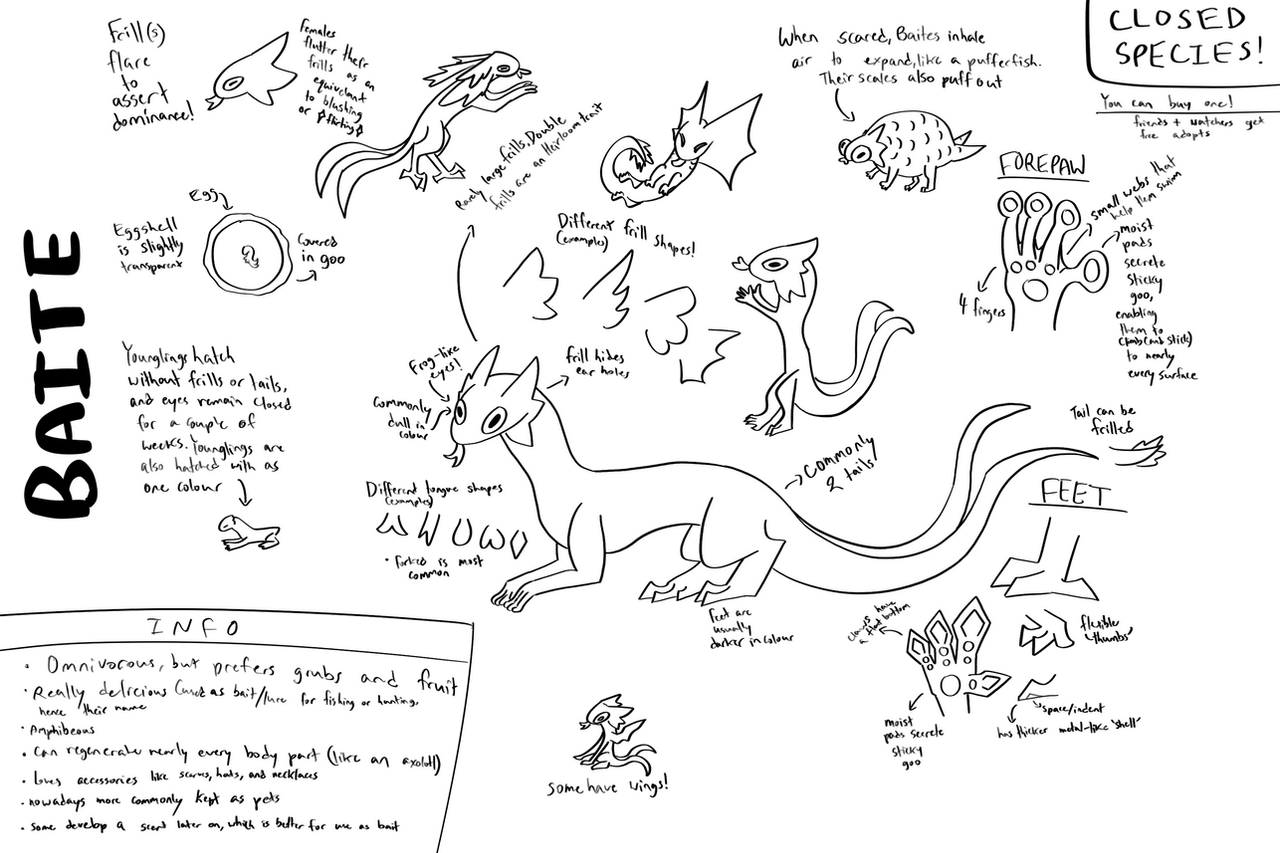 BAITE
Frill(s)
flare
to
assert
dominance!
Females
flutter their
frills as an
equivelant
to blushing
or flirting
Rarely large frills, Double
frills are an Heirloom trait
When scared, Baites inhale
air to expand, like a pufferfish.
Their scales also puff out
CLOSED
SPECIES!
You can buy one!
friends + watchers get
free adopts
FOREPAW
small webs that
help them swim
moist
pads
secrete
sticky
goo,
enabling
them to
climb (and stick)
to nearly
every surface
4 fingers
Egg
Eggshell
is slightly
transparent
Covered
in goo
Different frill shapes!
(examples)
Younglings hatch
without frills or tails,
and eyes remain closed
for a couple of
weeks. Younglings are
also hatched with as
one colour
Frog-like
eyes!
Commonly
dull in
colour
frill hides
ear holes
Different tongue shapes
(examples)
• Forked is most
common
Commonly
2 tails!
Tail can be
frilled
FEET
Feet are
usually
darker in colour
claws have
a flat bottom
flexible
'thumbs'
moist
pads secrete
sticky
goo
space/indent
has thicker metal-like 'shell'
some have wings!
INFO
• Omnivorous, but prefers grubs and fruit
• Really delicious (used as bait/lure for fishing or hunting,
hence their name
• Amphibeous
• Can regenerate nearly every body part (like an axolotl)
• Loves accessories like scarves, hats, and necklaces
• nowadays more commonly kept as pets
• Some develop a scent later on, which is better for use as bait